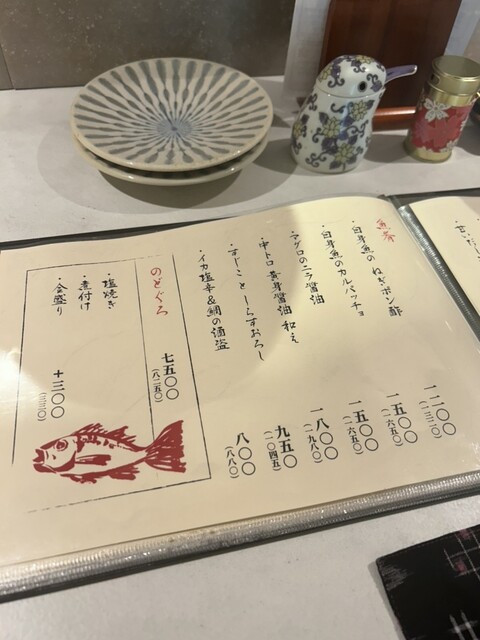 ・白身魚の ねぎポン酢 一二〇〇
(一三二〇)
・白身魚のカルパッチョ 一五〇〇
(一六五〇)
・マグロのニラ醤油 一五〇〇
(一六五〇)
・中トロ 黄身醤油 和え 一八〇〇
(一九八〇)
・すじことしらすおろし 九五〇
(一〇四五)
・イカ塩辛&鯛の酒盗 八〇〇
(八八〇)
のどぐろ 七五〇〇
(八二五〇)
・塩焼き
・煮付け
盛り +三〇〇
(三三〇)